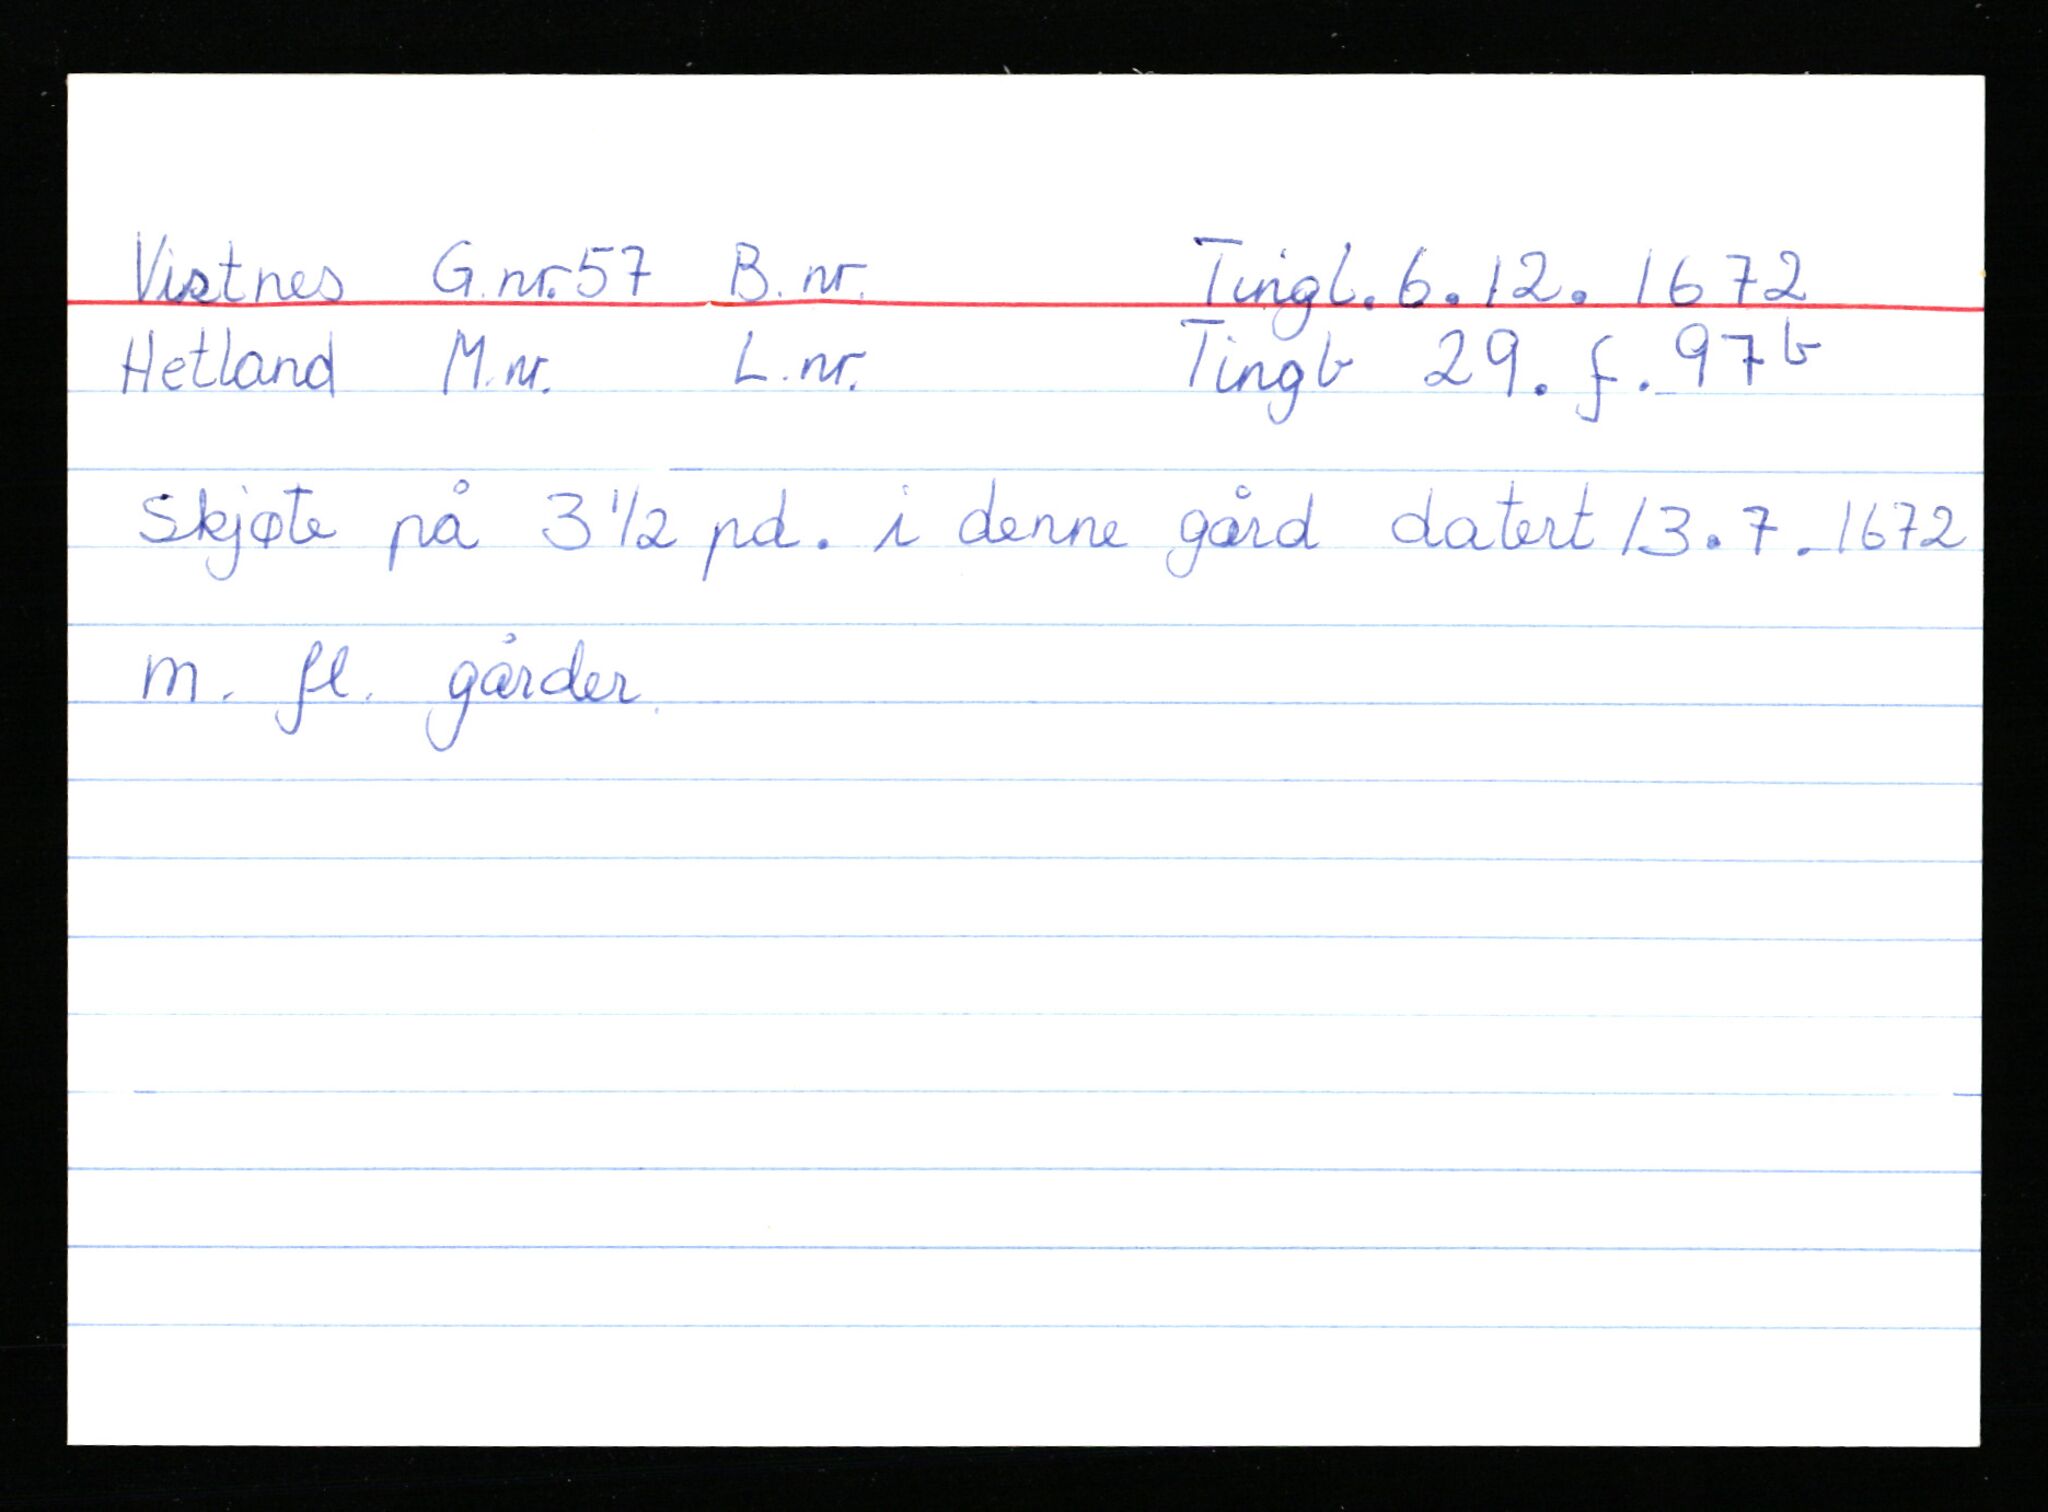 Vistnes G.nr. 57 B.nr. Tingl. 6.12.1672
Hetland M.nr. L.nr. Tingb 29. f. 97b
Skjøte på 3 1/2 pd. i denne gård datert 13.7.1672
m. fl. gårder.